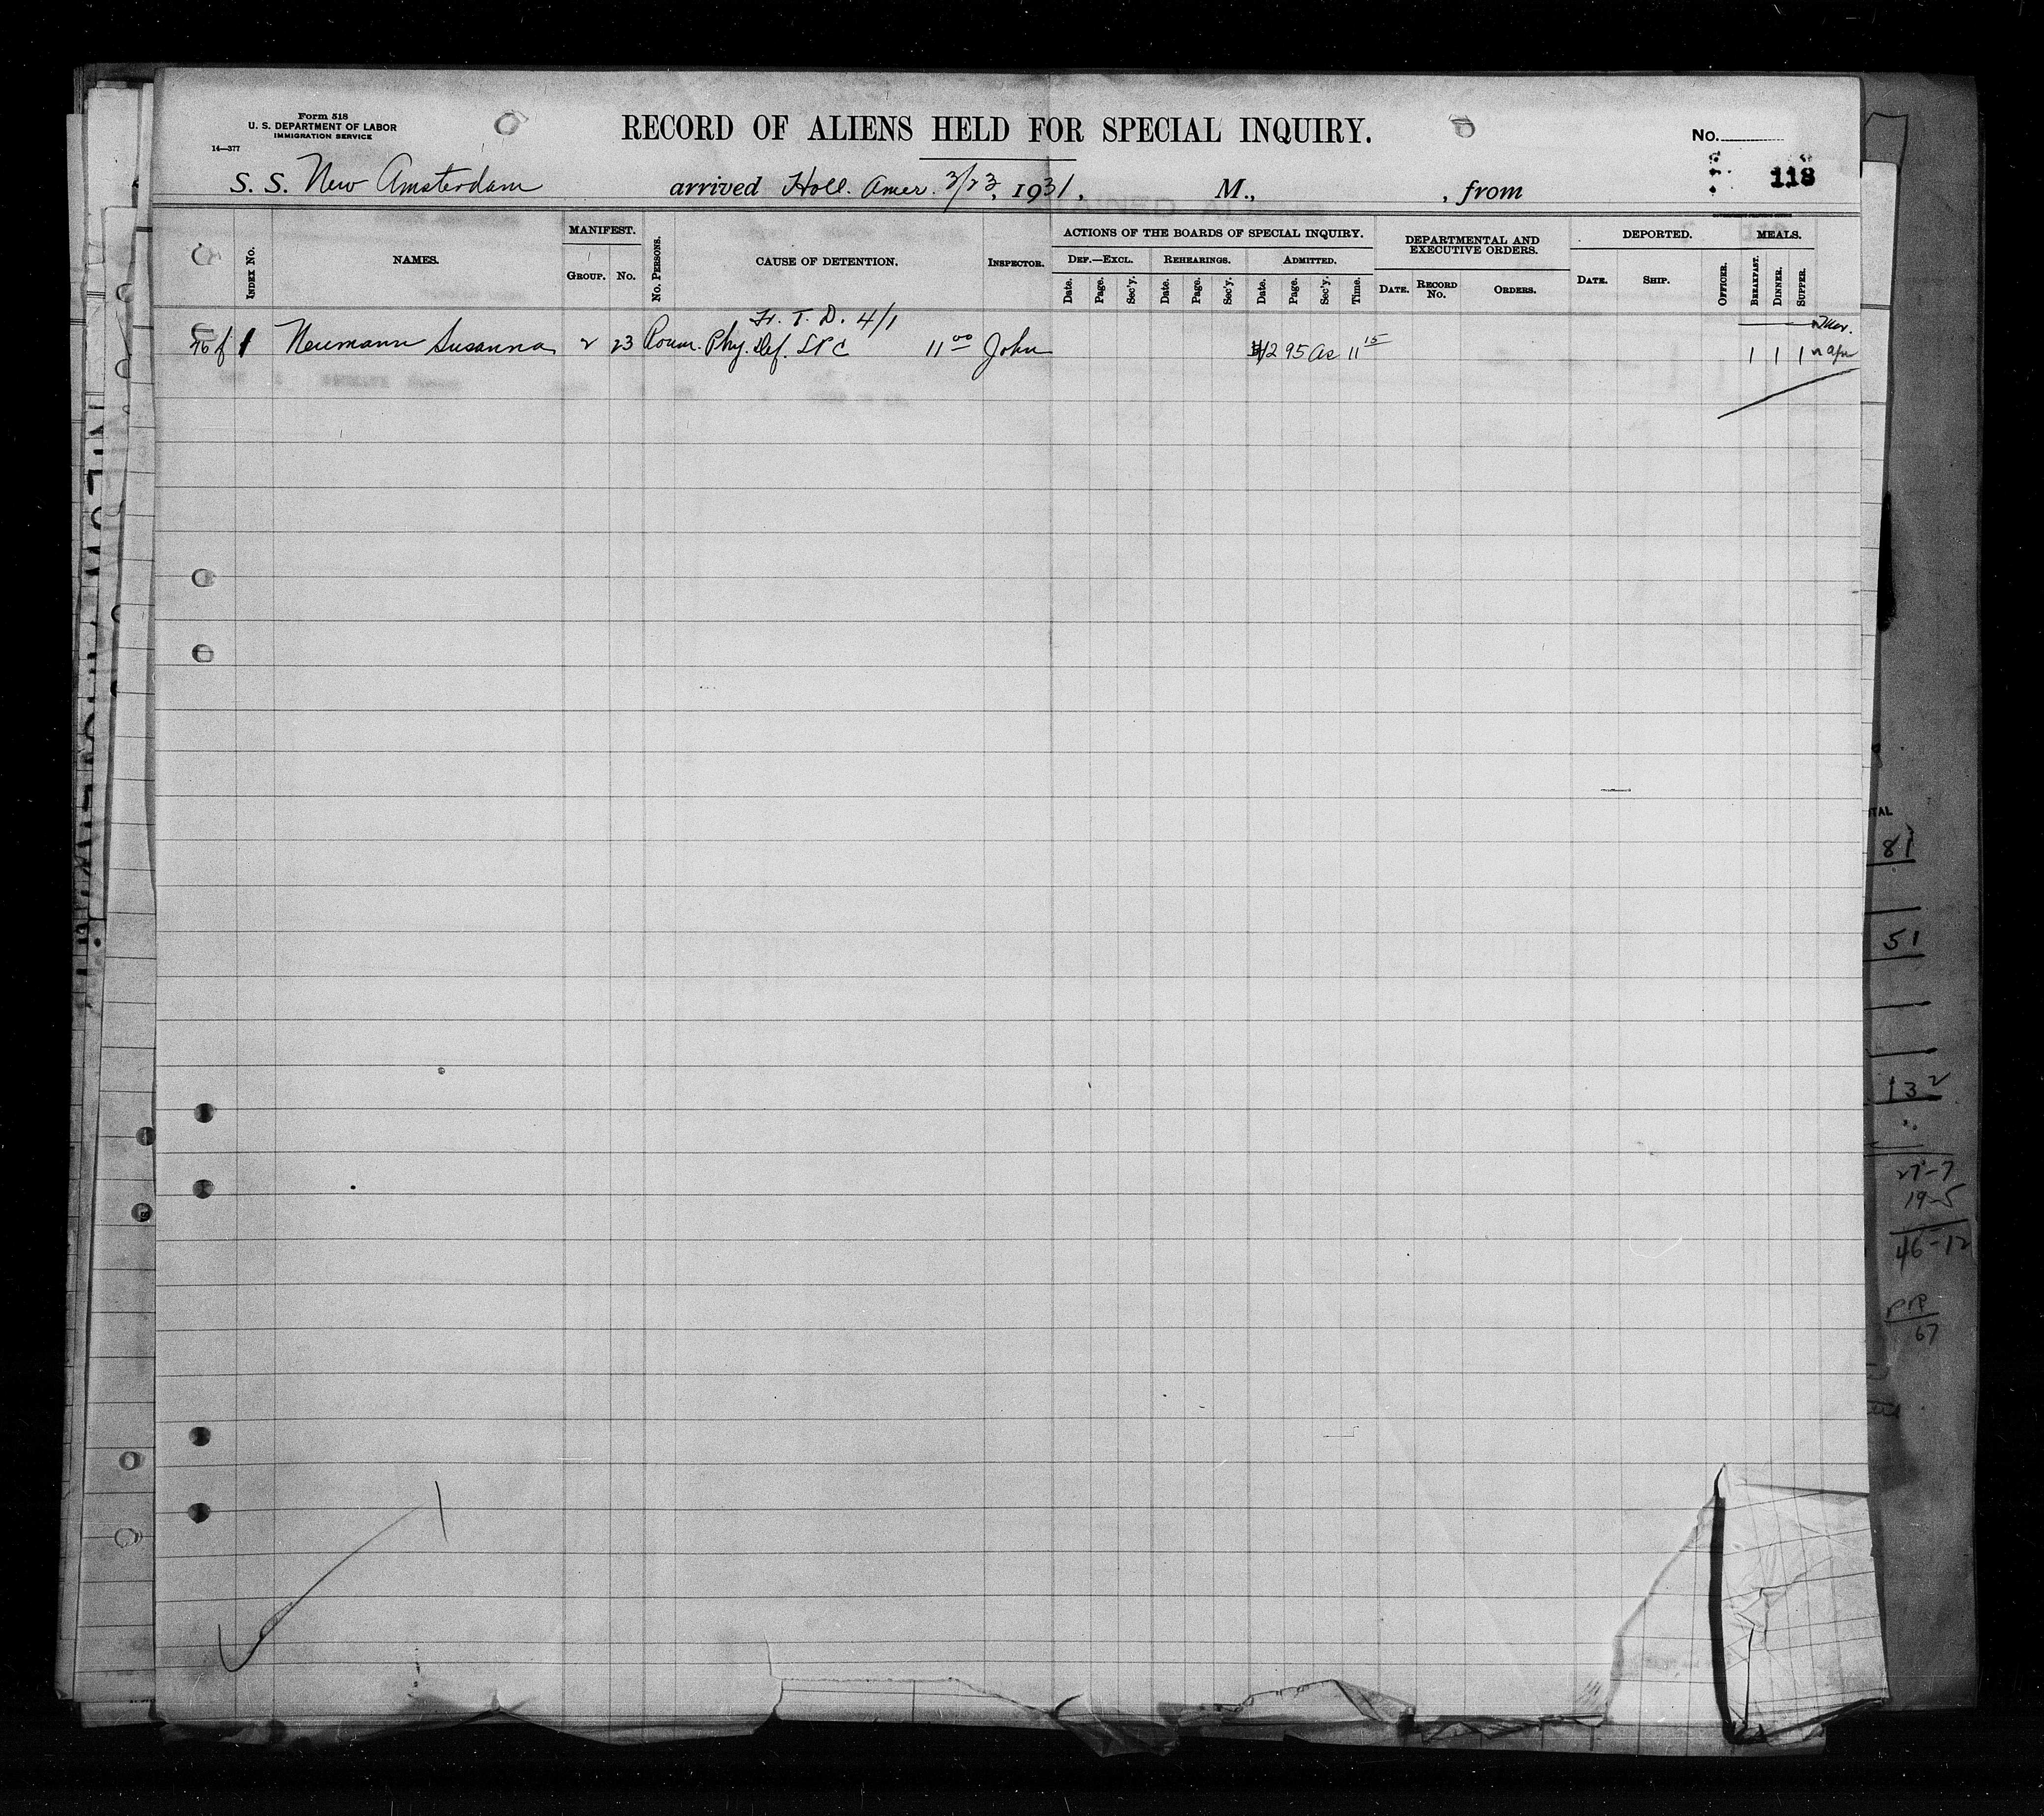 Form 518
U. S. DEPARTMENT OF LABOR
IMMIGRATION SERVICE
14—377
RECORD OF ALIENS HELD FOR SPECIAL INQUIRY.
No.
118
S. S. New Amsterdam arrived Holl. Amer. 3/23, 1931, M., , from
INDEX No.
NAMES.
MANIFEST.
GROUP. No.
No. PERSONS.
CAUSE OF DETENTION.
INSPECTOR.
ACTIONS OF THE BOARDS OF SPECIAL INQUIRY.
DEF.—EXCL. REHEARINGS. ADMITTED.
Date. Page. Sec'y. Date. Page. Sec'y. Date. Page. Sec'y. Time.
DEPARTMENTAL AND
EXECUTIVE ORDERS.
DATE. RECORD No. ORDERS.
DEPORTED.
DATE. SHIP. OFFICER.
MEALS.
BREAKFAST. DINNER. SUPPER.
Tr. T. D. 4/1
Mar.
f 1 Neumann Susanna 2 23 Roum. Phy. Def. LPC 11 00 John 95 11 15 1 1 1 Apr
TAL
81
51
132
27-7
19-5
46-12
67